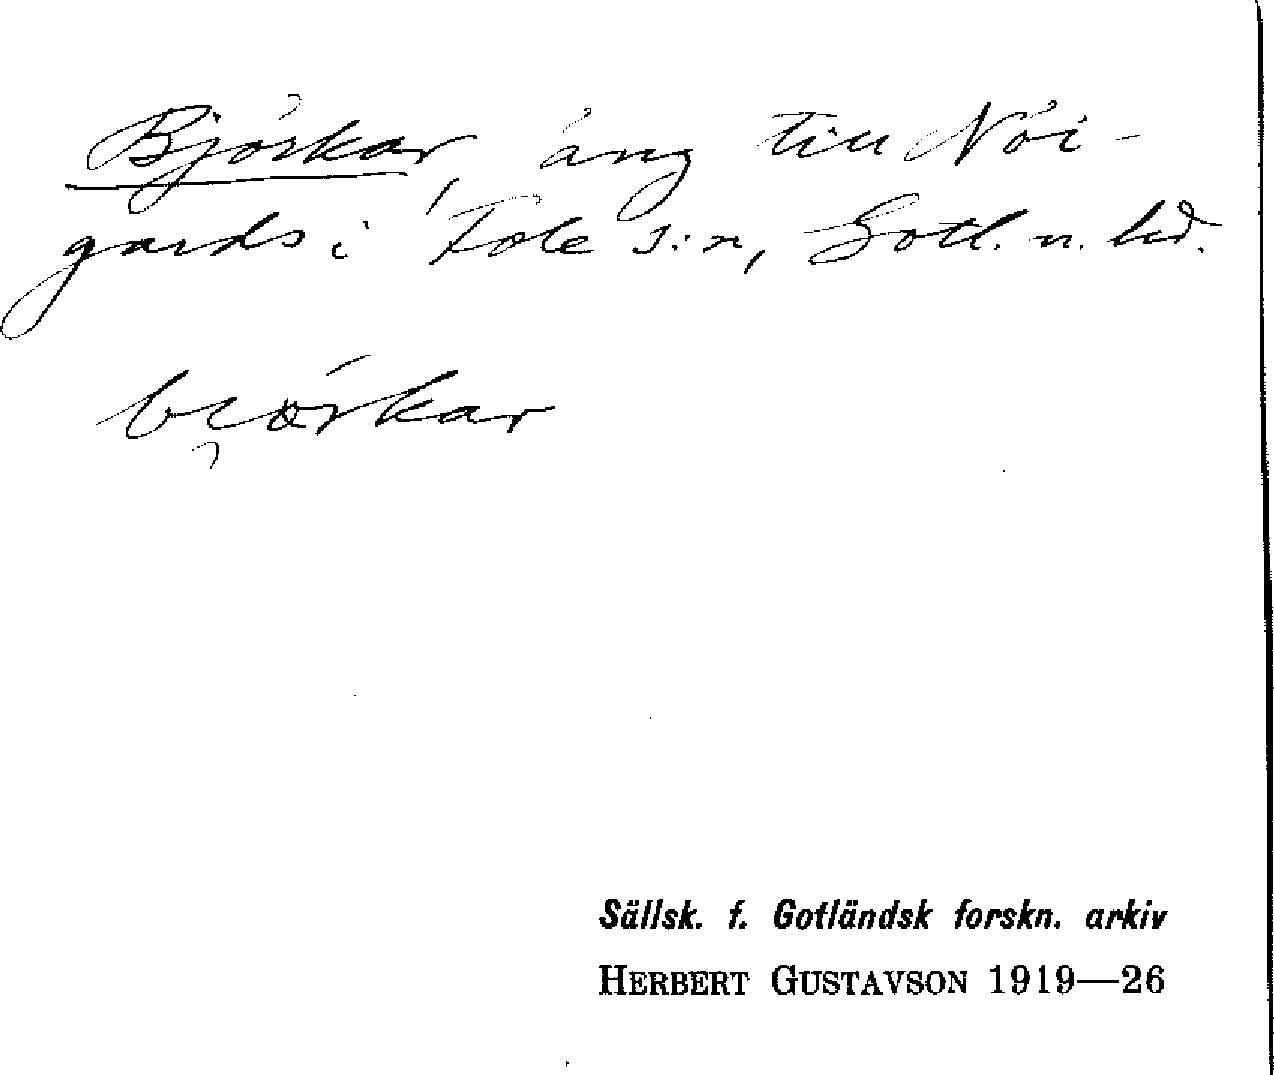 Björkar, äng till Nöi-
gards i Fole s:n, Gotl. n. hd.
Sällsk. f. Gotländsk forskn. arkiv
HERBERT GUSTAVSON 1919—26